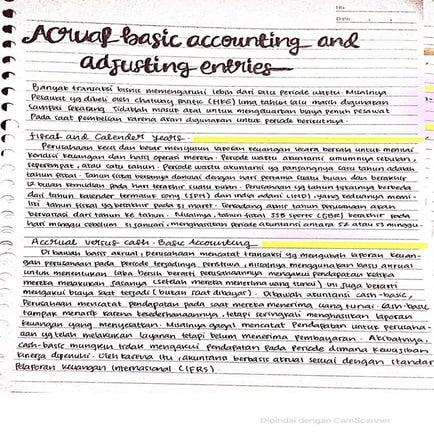 Accrual-basic accounting and
adjusting entries
Banyak transaksi bisnis memengaruhi lebih dari satu periode waktu. Misalnya
Pesawat yg dibeli oleh (HKG) lima tahun lalu masih digunakan
sampai sekarang. Tidaklah masuk akal untuk mengeluarkan biaya penuh pesawat
Pada saat pembelian karena akan digunakan untuk periode berikutnya.
Fiscal and Calender years.
Perusahaan kecil dan besar menyusun laporan keuangan secara berkala untuk menilai
kondisi keuangan dan hasil operasi mereka. Periode waktu akuntansi umumnya sebulan,
seperempat, atau satu tahun. Periode waktu akuntansi yg panjangnya satu tahun adalah
tahun fiskal. Tahun fiskal biasanya dimulai dengan hari pertama suatu bulan dan berakhir
12 bulan kemudian pada hari terakhir suatu bulan. Perusahaan yg tahun fiskalnya berbeda
dari tahun kalender termasuk sony (JPN) dan (IND), yang keduanya memi-
liki tahun fiskal yg berakhir 31 maret. Terkadang akhir tahun fiskal perusahaan akan
bervariasi dari tahun ke tahun. Misalnya, tahun fiskal JJB sports (GBR) berakhir pada
hari minggu sebelum 31 januari, menghasilkan periode akuntansi antara 52 atau 53 minggu.
Accrual versus cash-Basic Accounting
Di bawah basis akrual, perusahaan mencatat transaksi yg mengubah laporan keuan-
gan perusahaan pada periode terjadinya peristiwa. misalnya, menggunakan basis akrual
untuk menentukan laba bersih berarti perusahaan mengakui pendapatan ketika
mereka melakukan jasanya (setelah mereka menerima uang tunai) ini juga berarti
mengakui biaya saat terjadi (bukan saat dibayar). Dibawah akuntansi cash-basic,
Perusahaan mencatat Pendapatan pada saat mereka menerima uang tunai. cash-basic
tampak menarik karena kesederhanaannya, tetapi seringkali menghasilkan laporan
keuangan yang menyesatkan. Misalnya gagal mencatat Pendapatan untuk perusaha-
aan yg telah melakukan layanan tetapi belum menerima pembayaran. Akibatnya,
cash-basic mungkin tidak mengakui pendapatan pada periode dimana kewajiban
kinerja dipenuhi. Oleh karena itu, akuntansi berbasis akrual sesuai dengan standar
Pelaporan keuangan internasional (IFRS).
Dipindai dengan CamScanner